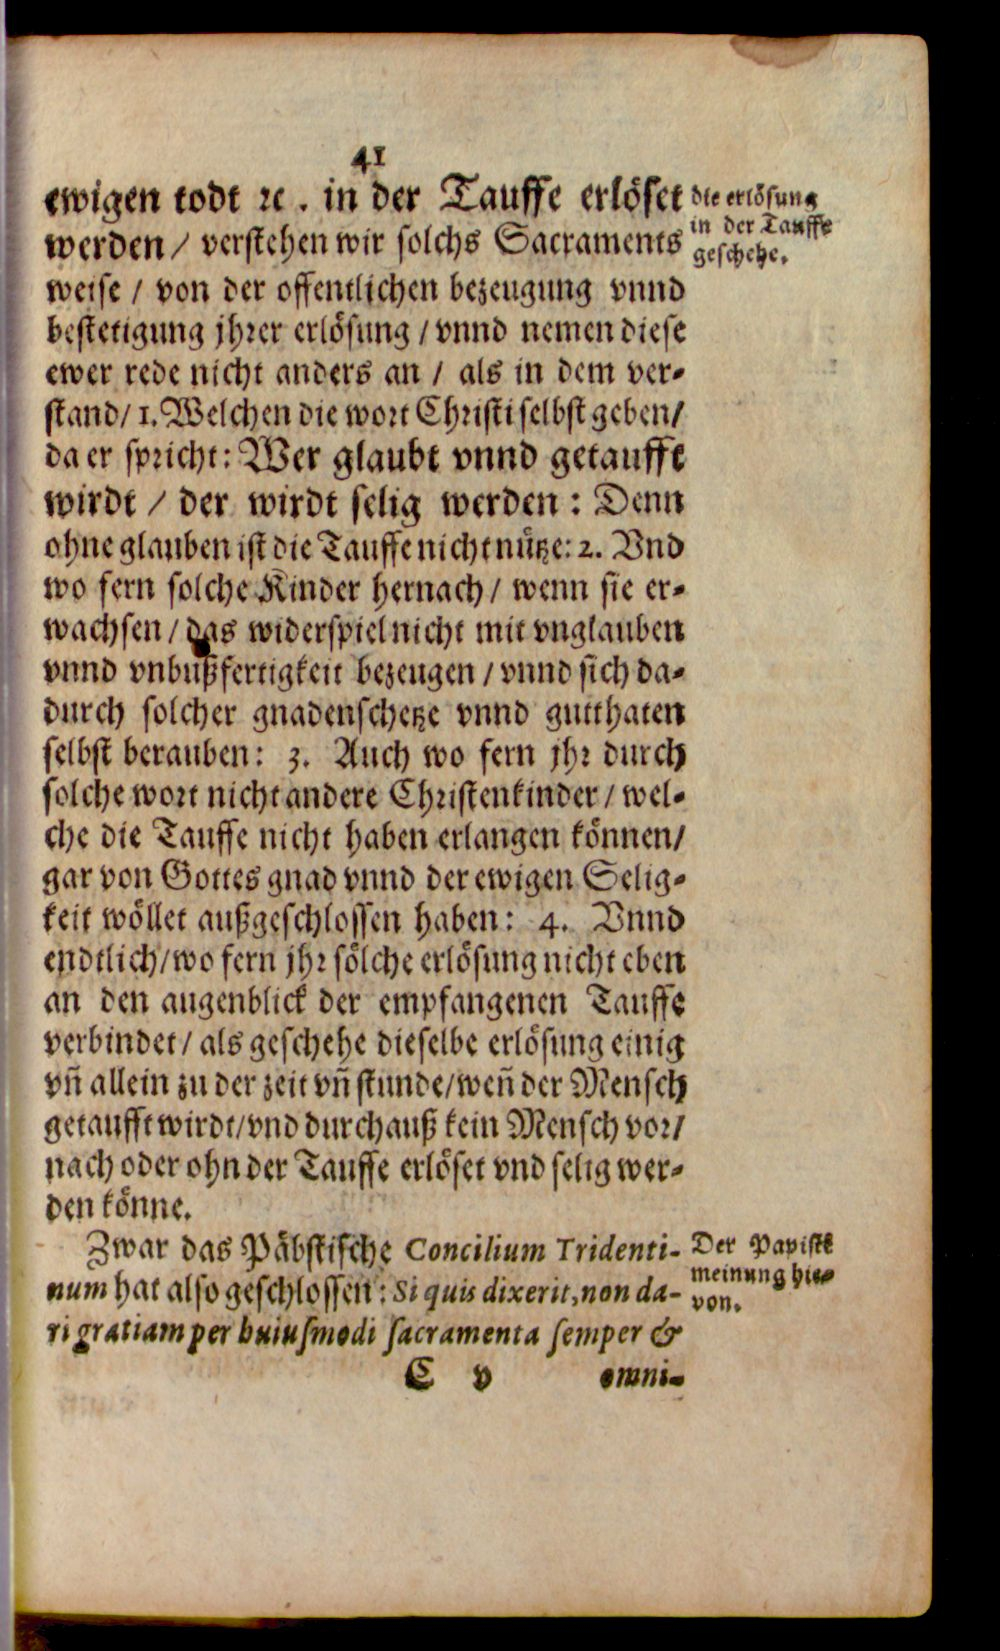 41
ewigen todt ꝛc. in der Tauffe erlöset
werden / verstehen wir solchs Sacraments
weise / von der offentlichen bezeugung vnnd
bestetigung jhrer erlösung / vnnd nemen diese
ewer rede nicht anders an / als in dem ver-
stand / 1. Welchen die wort Christi selbst geben /
da er spricht: Wer glaubt vnnd getaufft
wirdt / der wirdt selig werden : Denn
ohne glauben ist die Tauffe nicht nütze: 2. Vnd
wo fern solche Kinder hernach / wenn sie er-
wachsen / das widerspiel nicht mit vnglauben
vnnd vnbußfertigkeit bezeugen / vnnd sich da-
durch solcher gnadenschetze vnnd gutthaten
selbst berauben: 3. Auch wo fern jhr durch
solche wort nicht andere Christenkinder / wel-
che die Tauffe nicht haben erlangen können /
gar von Gottes gnad vnnd der ewigen Selig-
keit wöllet außgeschlossen haben: 4. Vnnd
endtlich / wo fern jhr sölche erlösung nicht eben
an den augenblick der empfangenen Tauffe
verbindet / als geschehe dieselbe erlösung einig
vn̄ allein zu der zeit vn̄ stunde / wen̄ der Mensch
getaufft wirdt / vnd durchauß kein Mensch vor /
nach oder ohn der Tauffe erlöset vnd selig wer-
den könne.
Zwar das Päbstische Concilium Tridenti-
num hat also geschlossen: Si quis dixerit, non da-
ri gratiam per huiusmodi sacramenta semper &
C v omni-
die erlösung
in der Tauffe
geschehe.
Der Papistē
meinung hie-
von.